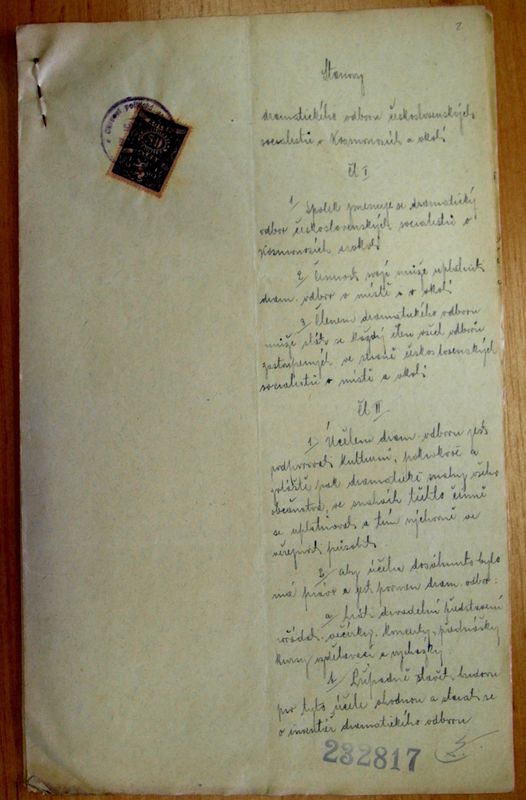 2
Stanovy
dramatického odboru československých
socialistů v Kosmonosích a okolí
Čl I
1/ Spolek jmenuje se dramatický
odbor československých socialistů v
Kosmonosích a okolí
2/ Činnost svoji může uplatnit
dram. odbor v místě a v okolí
3/ Členem dramatického odboru
může státi se každý člen všech odborů
zastoupených ve straně československých
socialistů v místě a okolí
Čl II
1/ Účelem dram. odboru jest
podporovati kulturní, pokrokové a
zvláště pak dramatické snahy všeho
občanstva, ve snahách těchto činně
se uplatňovat a tím výchovně ve
veřejnost působit
2/ aby účelu dosáhnuto bylo
má právo a jest povinen dram. odbor:
a/ hráti divadelní představení
pořádat večírky, koncerty, přednášky
kursy vzdělávací a vycházky
Případně stavět budovu
pro tyto účele vhodnou a starat se
o inventář dramatického odboru
232817